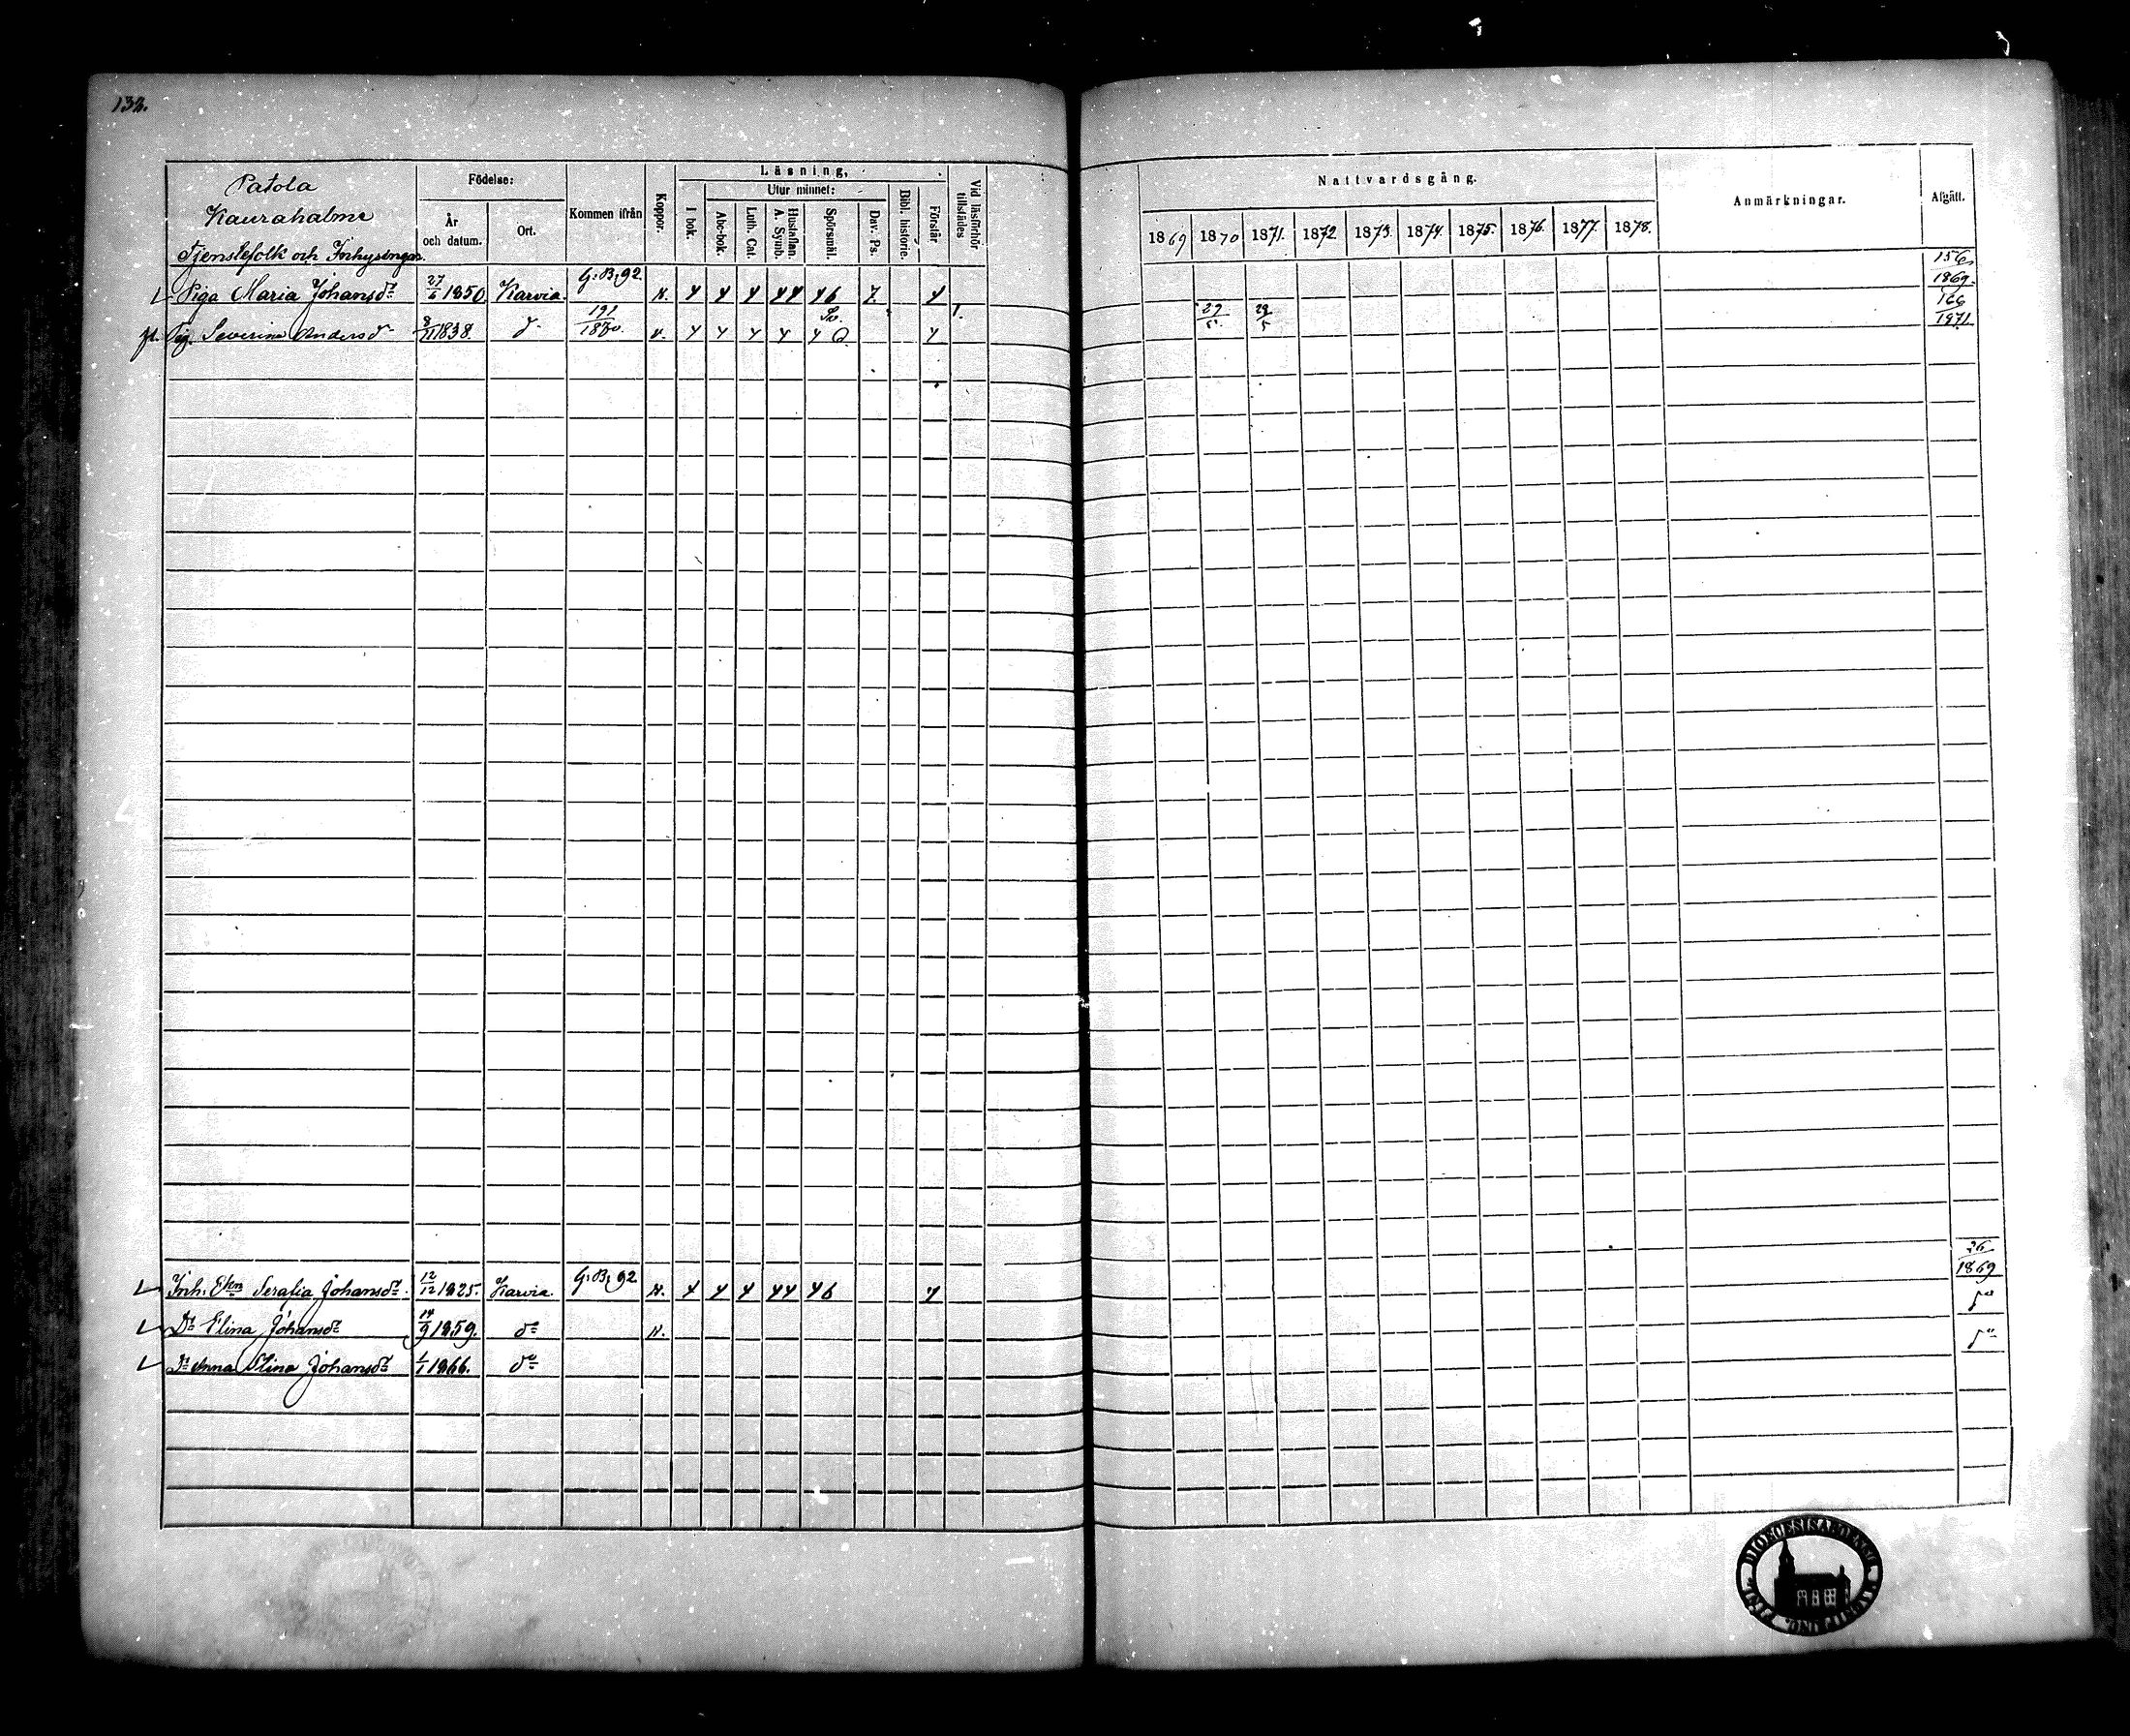 132.
Patola
Kauhahalme
Tjenstefolk och Inhysingar.
Födelse:
År och datum.
Ort.
Kommen ifrån
Koppor.
Läsning,
I bok.
Utur minnet:
Abc-bok.
Luth. Cat.
Hustaflan. A. Symb.
Spörsmål.
Dav. Ps.
Bibl. historie.
Förstår
Vid läsförhör tillstädes
Nattvardsgång.
1869 1870 1871. 1872 1873. 1874. 1875. 1876. 1877. 1878.
Anmärkningar.
Afgått.
Piga Maria Johansdr 27/6 1850 Karvia. G:B:92. 156 1869.
Pig. Severina Andersdr 8/11 1838. do 191/1870. v. Sv. 1. 29/5. 29/5 166 1871
Inh. Ekn Serafia Johansdr. 12/12 1825. Karvia. G:B:92 26 1869
Dr Elina Johansdr 14/9 1859. do do
Dr Anna Stina Johansdr 1/1 1866. do do
DIOECESIS ABOENSIS